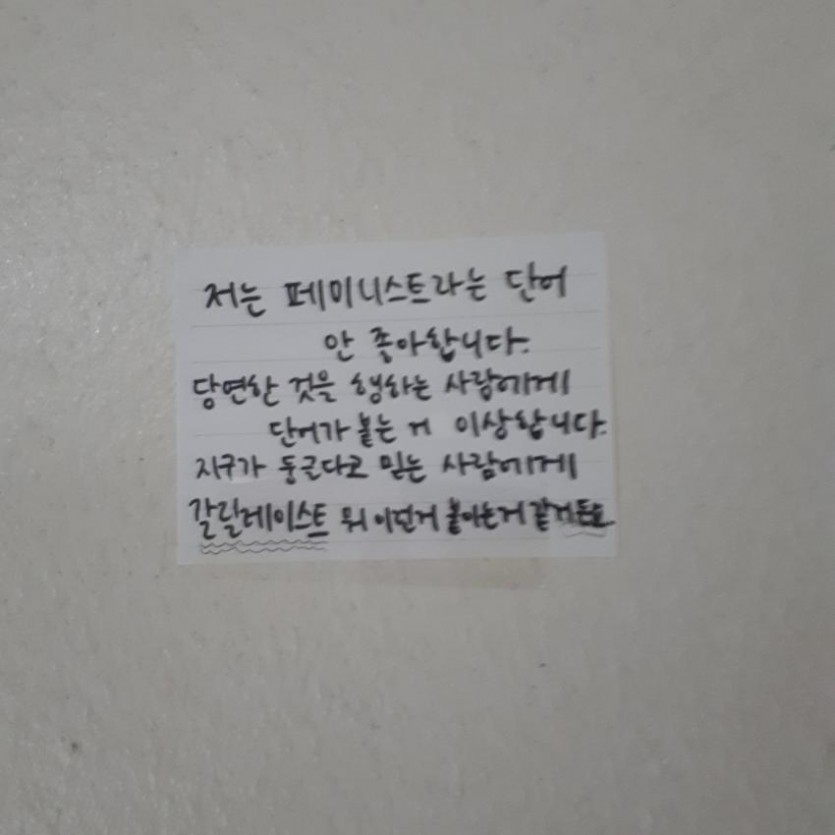 저는 페미니스트라는 단어
안 좋아합니다.
당연한 것을 행하는 사람에게
단어가 붙는 거 이상합니다.
지구가 둥근다고 믿는 사람에게
갈릴레이스트 뭐 이런거 붙이는거 같거든요